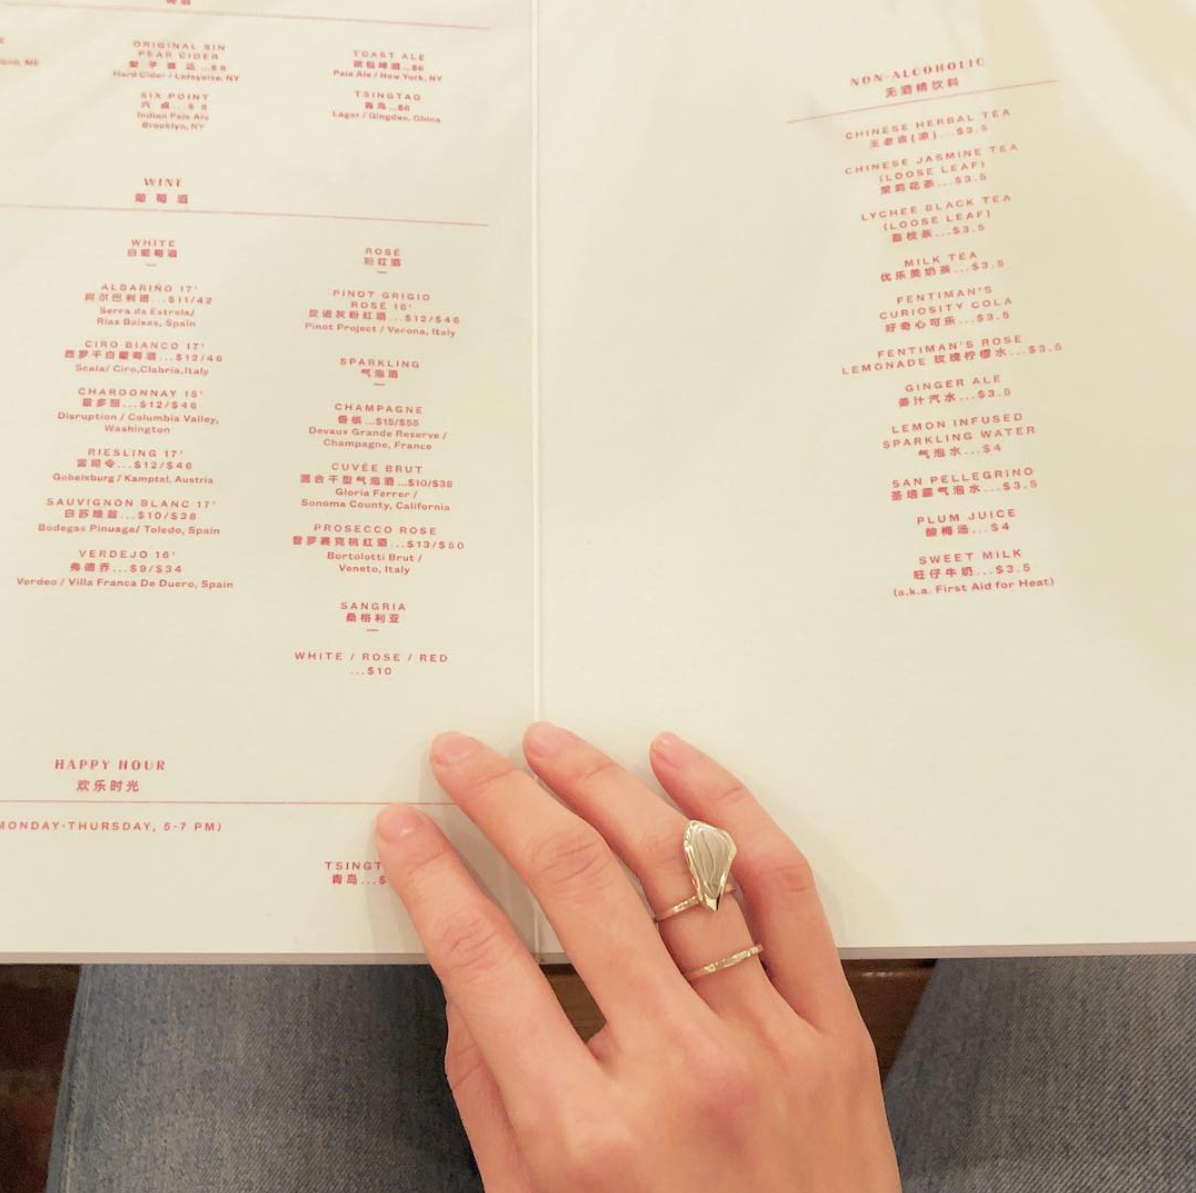 啤酒
ORIGINAL SIN
PEAR CIDER
...$8
Hard Cider / Lafayette, NY
SIX POINT
六点...$8
Indian Pale Ale
Brooklyn, NY
TOAST ALE
...$6
Pale Ale / New York, NY
TSINGTAO
青岛...$6
Lager / Qingdao, China
WINE
葡萄酒
WHITE
白葡萄酒
ALBARIÑO 17'
阿尔巴利诺...$11/42
Serra da Estrela/
Rias Baixas, Spain
CIRO BIANCO 17'
西罗干白葡萄酒...$12/46
Scala/ Ciro,Clabria,Italy
CHARDONNAY 15'
霞多丽...$12/$46
Disruption / Columbia Valley,
Washington
RIESLING 17'
雷司令...$12/$46
Gobelsburg / Kamptal, Austria
SAUVIGNON BLANC 17'
白苏维翁...$10/$38
Bodegas Pinuaga/ Toledo, Spain
VERDEJO 16'
弗德乔...$9/$34
Verdeo / Villa Franca De Duero, Spain
ROSÉ
粉红酒
PINOT GRIGIO
ROSÉ 16'
灰粉红酒...$12/$46
Pinot Project / Verona, Italy
SPARKLING
气泡酒
CHAMPAGNE
香槟...$15/$55
Devaux Grande Reserve /
Champagne, France
CUVÉE BRUT
混合干型气泡酒...$10/$38
Gloria Ferrer /
Sonoma County, California
PROSECCO ROSE
普罗赛克桃红酒...$13/$50
Bortolotti Brut /
Veneto, Italy
SANGRIA
桑格利亚
WHITE / ROSE / RED
...$10
HAPPY HOUR
欢乐时光
MONDAY-THURSDAY, 5-7 PM)
TSINGT
青岛...$
NON-ALCOHOLIC
无酒精饮料
CHINESE HERBAL TEA
王老吉(凉)...$3.5
CHINESE JASMINE TEA
(LOOSE LEAF)
茉莉花茶...$3.5
LYCHEE BLACK TEA
(LOOSE LEAF)
荔枝茶...$3.5
MILK TEA
优乐美奶茶...$3.5
FENTIMAN'S
CURIOSITY COLA
好奇心可乐...$3.5
FENTIMAN'S ROSE
LEMONADE 玫瑰柠檬水...$3.5
GINGER ALE
姜汁汽水...$3.5
LEMON INFUSED
SPARKLING WATER
气泡水...$4
SAN PELLEGRINO
圣培露气泡水...$3.5
PLUM JUICE
酸梅汤...$4
SWEET MILK
旺仔牛奶...$3.5
(a.k.a. First Aid for Heat)